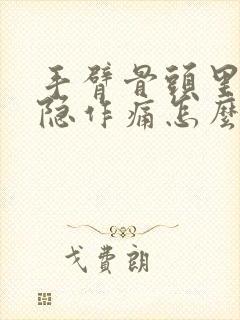 手臂骨頭里
隐作痛怎麽
戈費朗